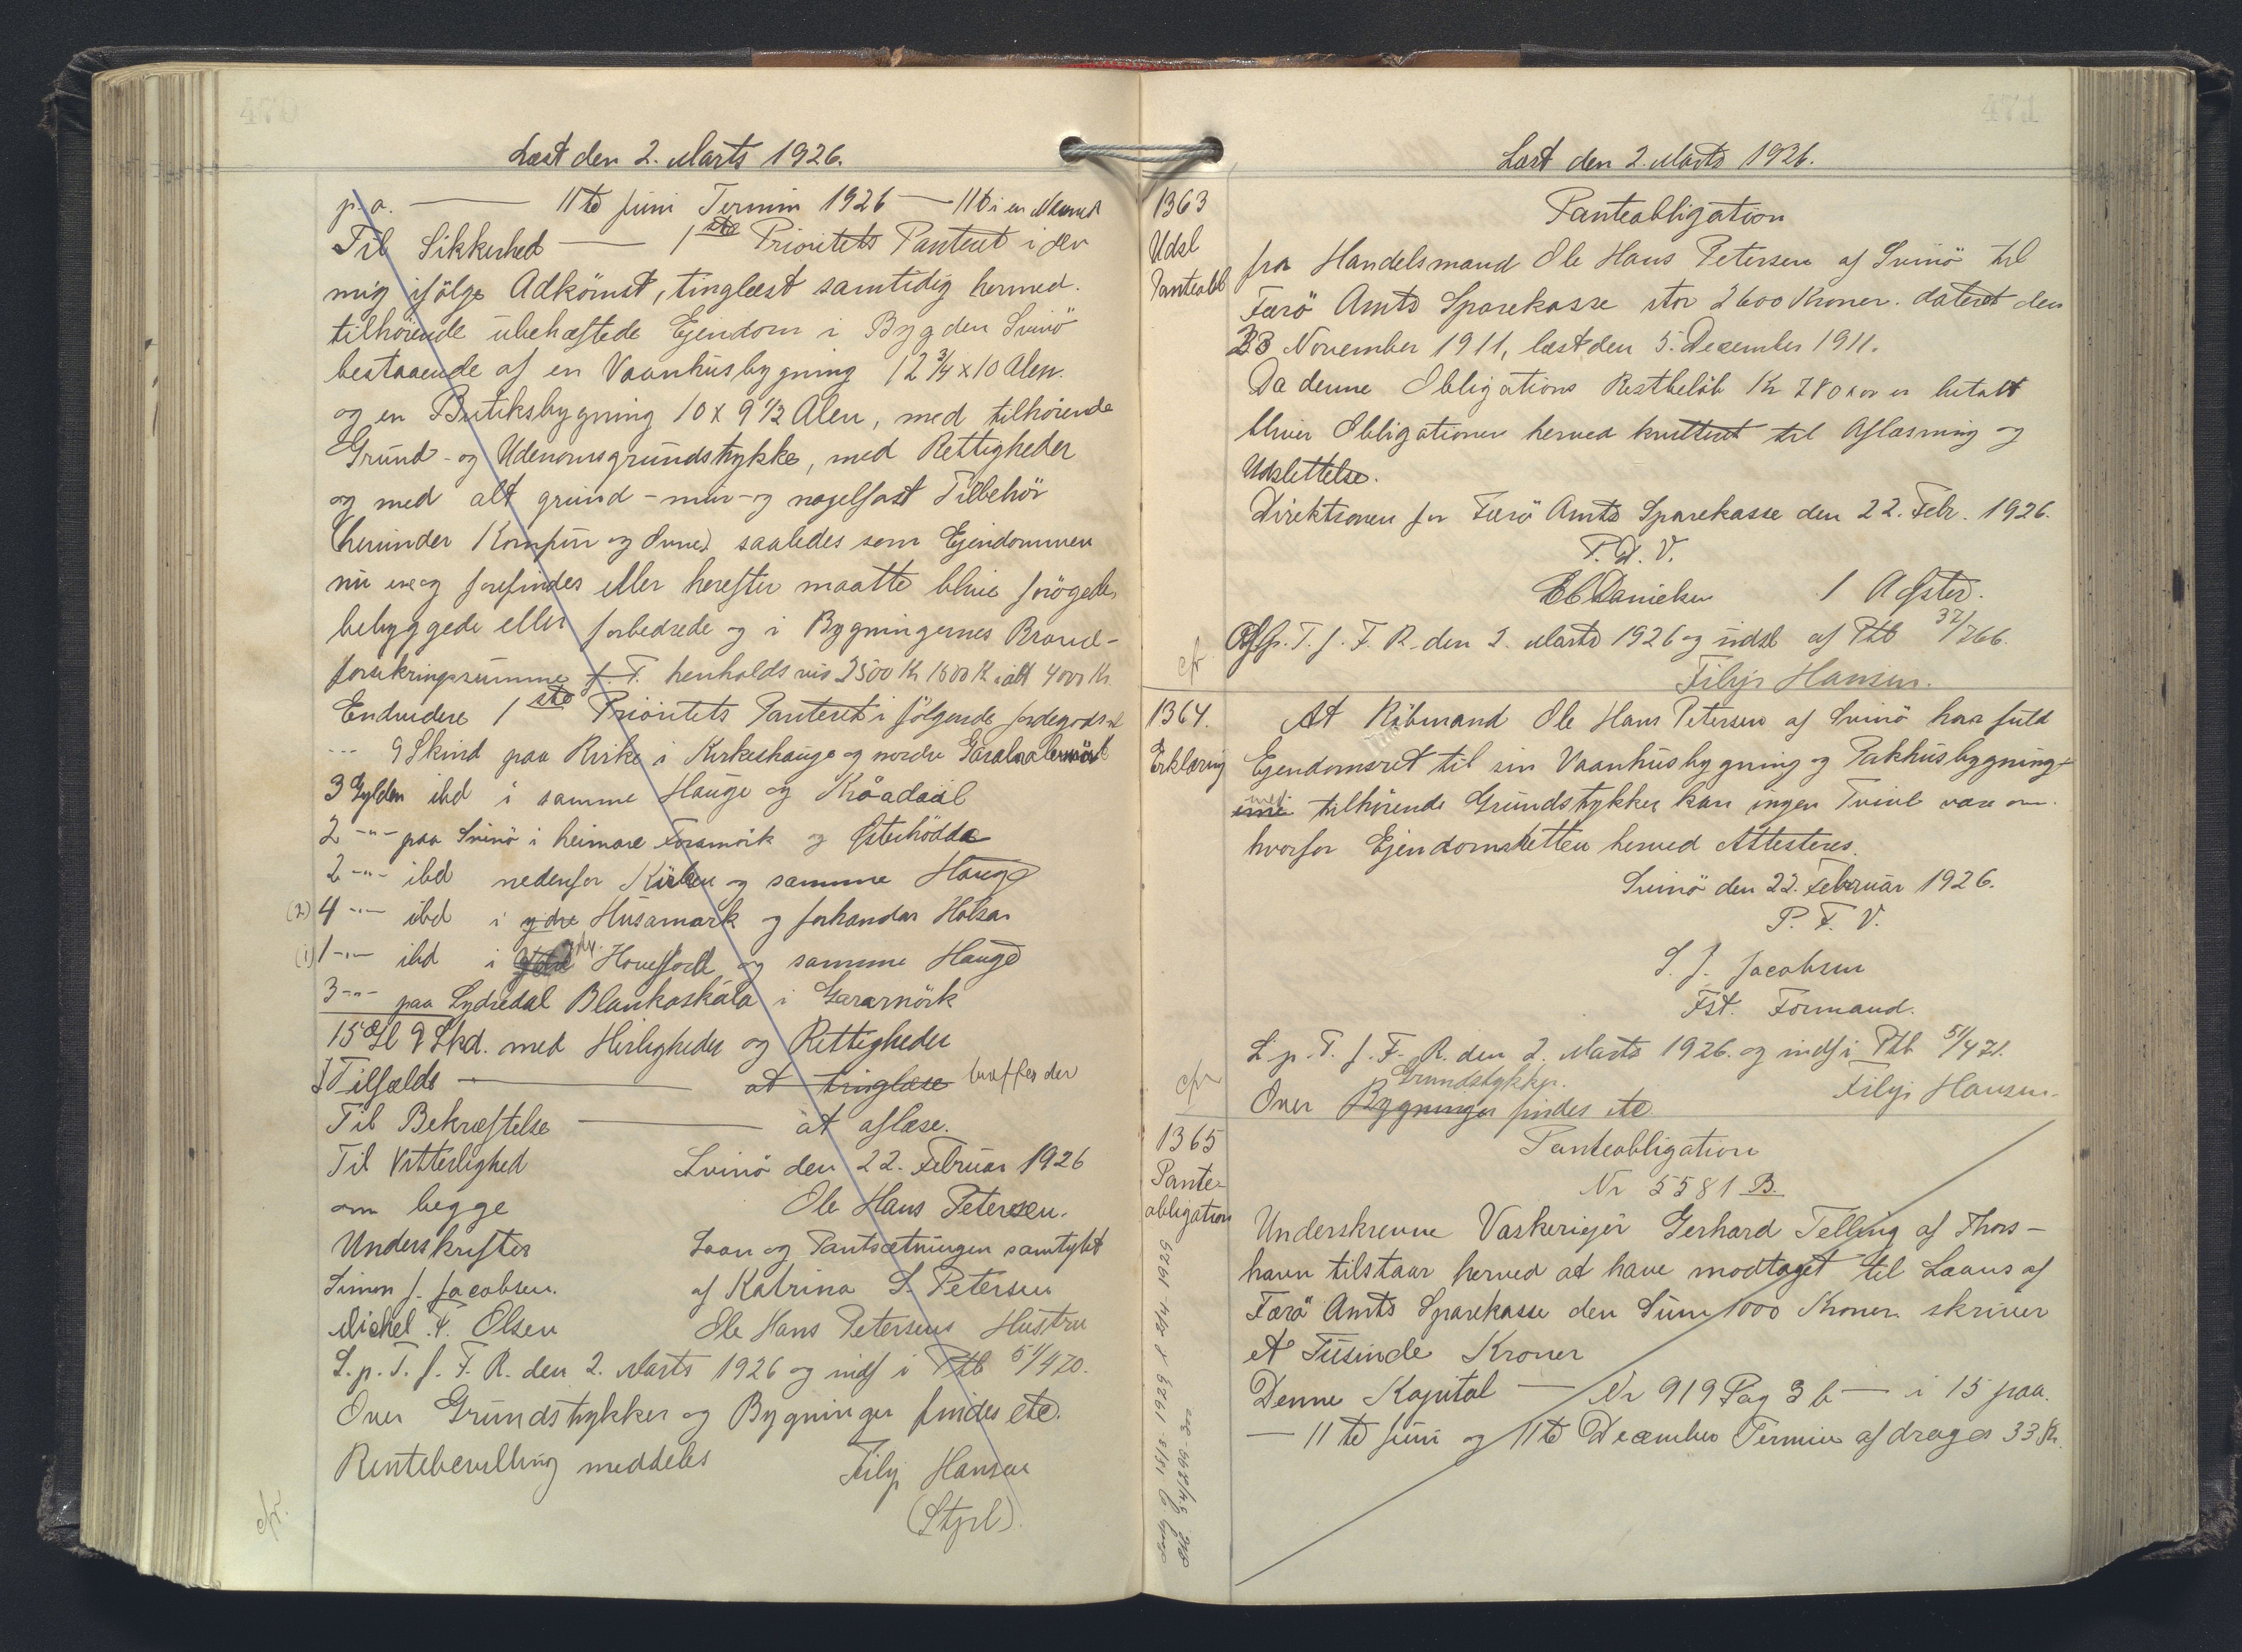 Læst den 2. Marts 1926.
p. a. — 11te Juni Termin 1926 — 116 i en
Til Sikkerhed — 1ste Prioritets Panteret i den
mig ifölge Adkömst, tinglæst samtidig hermed.
tilhörende ubehæftede Ejendom i Bygden Svinö
bestaaende af en Vaanhusbygning 12 3/4 x 10 Alen.
og en Butiksbygning 10 x 9 1/2 Alen, med tilhörende
Grund- og Udenomsgrundstykke, med Rettigheder
og med alt grund-mur-og nagelfast Tilbehör
(herunder Komfur og Ovne) saaledes som Ejendommen
nu er og forefindes eller herefter maatte blive forögede,
bebyggede eller forbedrede og i Bygningernes Brand-
forsikringssumme p. T. henholdsvis 2500 Kr 1500 Kr ialt 4000 Kr
Endvidere 1ste Prioritets Panteret i fölgende
--- 9 Skind paa Kirke i Kirkeshauge og nordre
3 Gylden ibd i samme Hauge og Kråadaal
2 -"- paa Svinö i heimare Forsmörk og Østerhödda
2 -"- ibd nedenfor Kirken og samme Hauge
(2) 4 -"- ibd i ydre Husamark og forhandar Halsar
(1) 1 -"- ibd i og samme Hauge
3 -"- paa Lydredal Blankaskåla i Gararnörk
15 Gl 9 Skd. med Herligheder og Rettigheder
I Tilfælde — at tinglæse
Til Bekræftelse — at aflæse.
Til Vitterlighed Svinö den 22. Februar 1926
om begge Ole Hans Petersen.
Underskrifter Laan og Pantsætningen samtykt
Simon J. Jacobsen. af Katrina S. Petersen
Michel F. Olsen Ole Hans Petersens Hustru
L. p. T. f. F. R. den 2. Marts 1926 og indf i Ptb 51/470.
Over Grundstykker og Bygninger findes etc.
Rentebevilling meddeles Filip Hansen
(Stpl).
cfr.
Læst den 2. Marts 1926.
1363
Udsl
Panteobl
Panteobligation
fra Handelsmand Ole Hans Petersen af Svinö til
Færö Amts Sparekasse stor 2600 Kroner. dateret den
23 November 1911, læst den 5. December 1911.
Da denne Obligations Restbelöb Kr 780 er betalt
bliver Obligationen herved kvitteret til Aflæsning og
Udslettelse.
Direktionen for Færö Amts Sparekasse den 22. Febr. 1926.
P. D. V.
Danielsen / A
Afl. p. T. f. F. R. den 2. Marts 1926 og udsl af Ptb 37/266
Filip Hansen.
cfr
1364.
Erklæring
At Köbmand Ole Hans Petersen af Svinö har fuld
Ejendomsret til sin Vaanhusbygning og Pakhusbygning
med tilhörende Grundstykker kan ingen Tvivl være om.
hvorfor Ejendomsretten herved Attesteres.
Svinö den 22. Februar 1926.
P. F. V.
S. J. Jacobsen
Fst. Formand.
L. p. T. f. F. R. den 2. Marts 1926. og indf i Ptb 51/471.
Grundstykker.
Over Bygninger findes etc Filip Hansen.
cfr
1365
Pante-
obligation
Panteobligation
Nr 5581 B.
Underskrevne Vaskeriejer Gerhard Telling af Thors-
havn tilstaar herved at have modtaget til Laans af
Færö Amts Sparekasse den Sum 1000 Kroner skriver
et Tusinde Kroner
Denne Kapital — Nr 919 Pag 3 b — i 15 paa.
— 11te Juni og 11te December Termin afdrages 33 Kr.